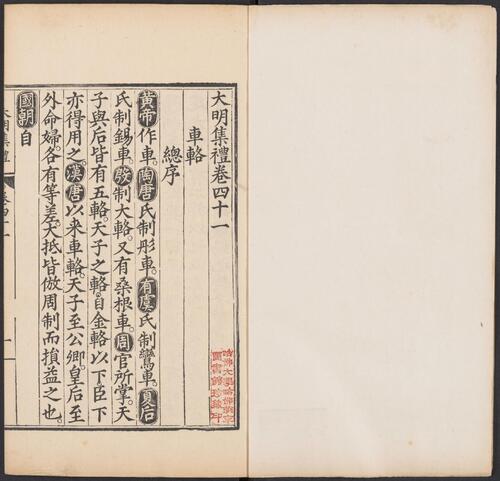 大明集禮卷四十一
車輅
總序
黃帝作車。陶唐氏制彤車。有虞氏制鸞車。夏后
氏制鍚車。殷制大輅。又有桑根車。周官所掌。天
子與后皆有五輅。天子之輅。自金輅以下。臣下
亦得用之。漢唐以來車輅。天子至公卿。皇后至
外命婦。各有等差。大抵皆倣周制而損益之也。
國朝自
大明集禮
卷四十一
一
哈佛大學哈佛燕京
圖書館珍藏印